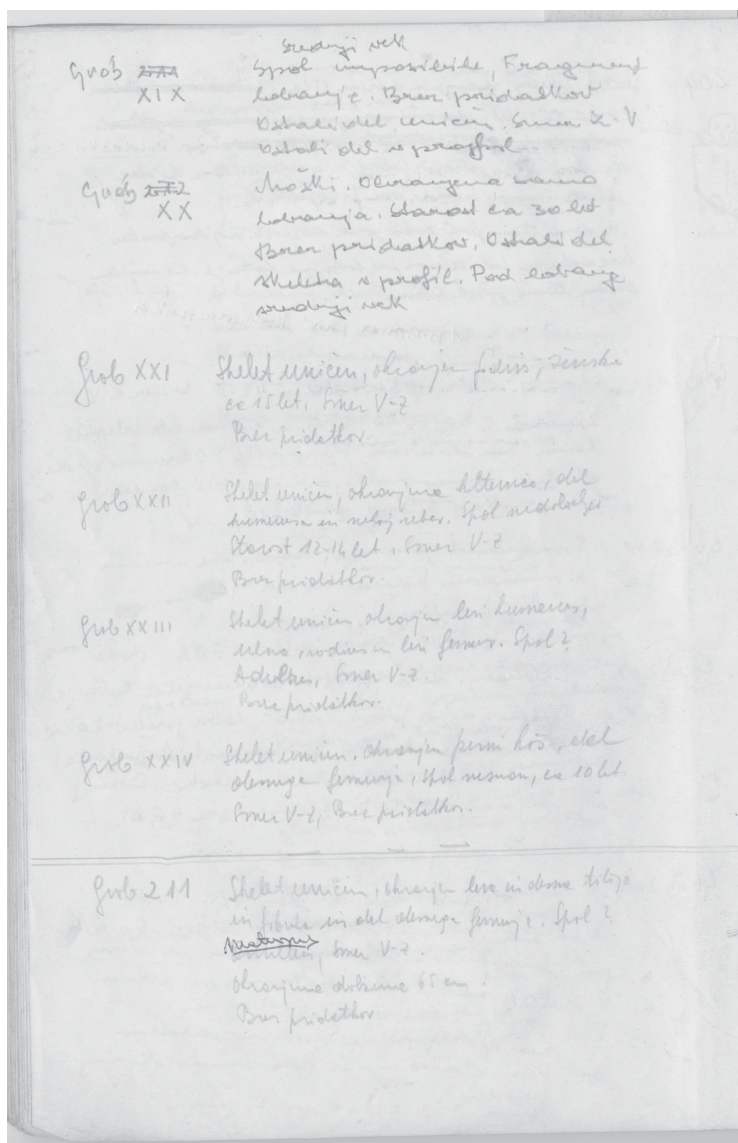 srednji vek
Grob XIX Spol impossibile, Fragment
lobanje. Brez pridatkov
Ostali del uničen. Smer Z-V
Ostali del v profil.
Grob XX Moški. Ohranjena samo
lobanja. Starost ca 30 let
Brez pridatkov. Ostali del
skeleta v profil. Pod lobanjo
srednji vek
Grob XXI Skelet uničen, ohranjen pelvis, ženska
ca 15 let, Smer V-Z
Brez pridatkov.
Grob XXII Skelet uničen, ohranjena ključnica, del
humerusa in nekaj reber. Spol nedoločljiv
Starost 12-14 let, Smer V-Z
Brez pridatkov.
Grob XXIII Skelet uničen, ohranjen levi humerus,
ulna, radius in levi femur. Spol?
Adultus, Smer V-Z.
Brez pridatkov.
Grob XXIV Skelet uničen, ohranjen prsni koš, del
desnega femurja, spol neznan, ca 10 let
Smer V-Z, Brez pridatkov.
Grob 211 Skelet uničen, ohranjen leva in desna tibija
in fibula in del desnega femurja. Spol?
maturus, Smer V-Z.
Ohranjena dolžina 65 cm.
Brez pridatkov